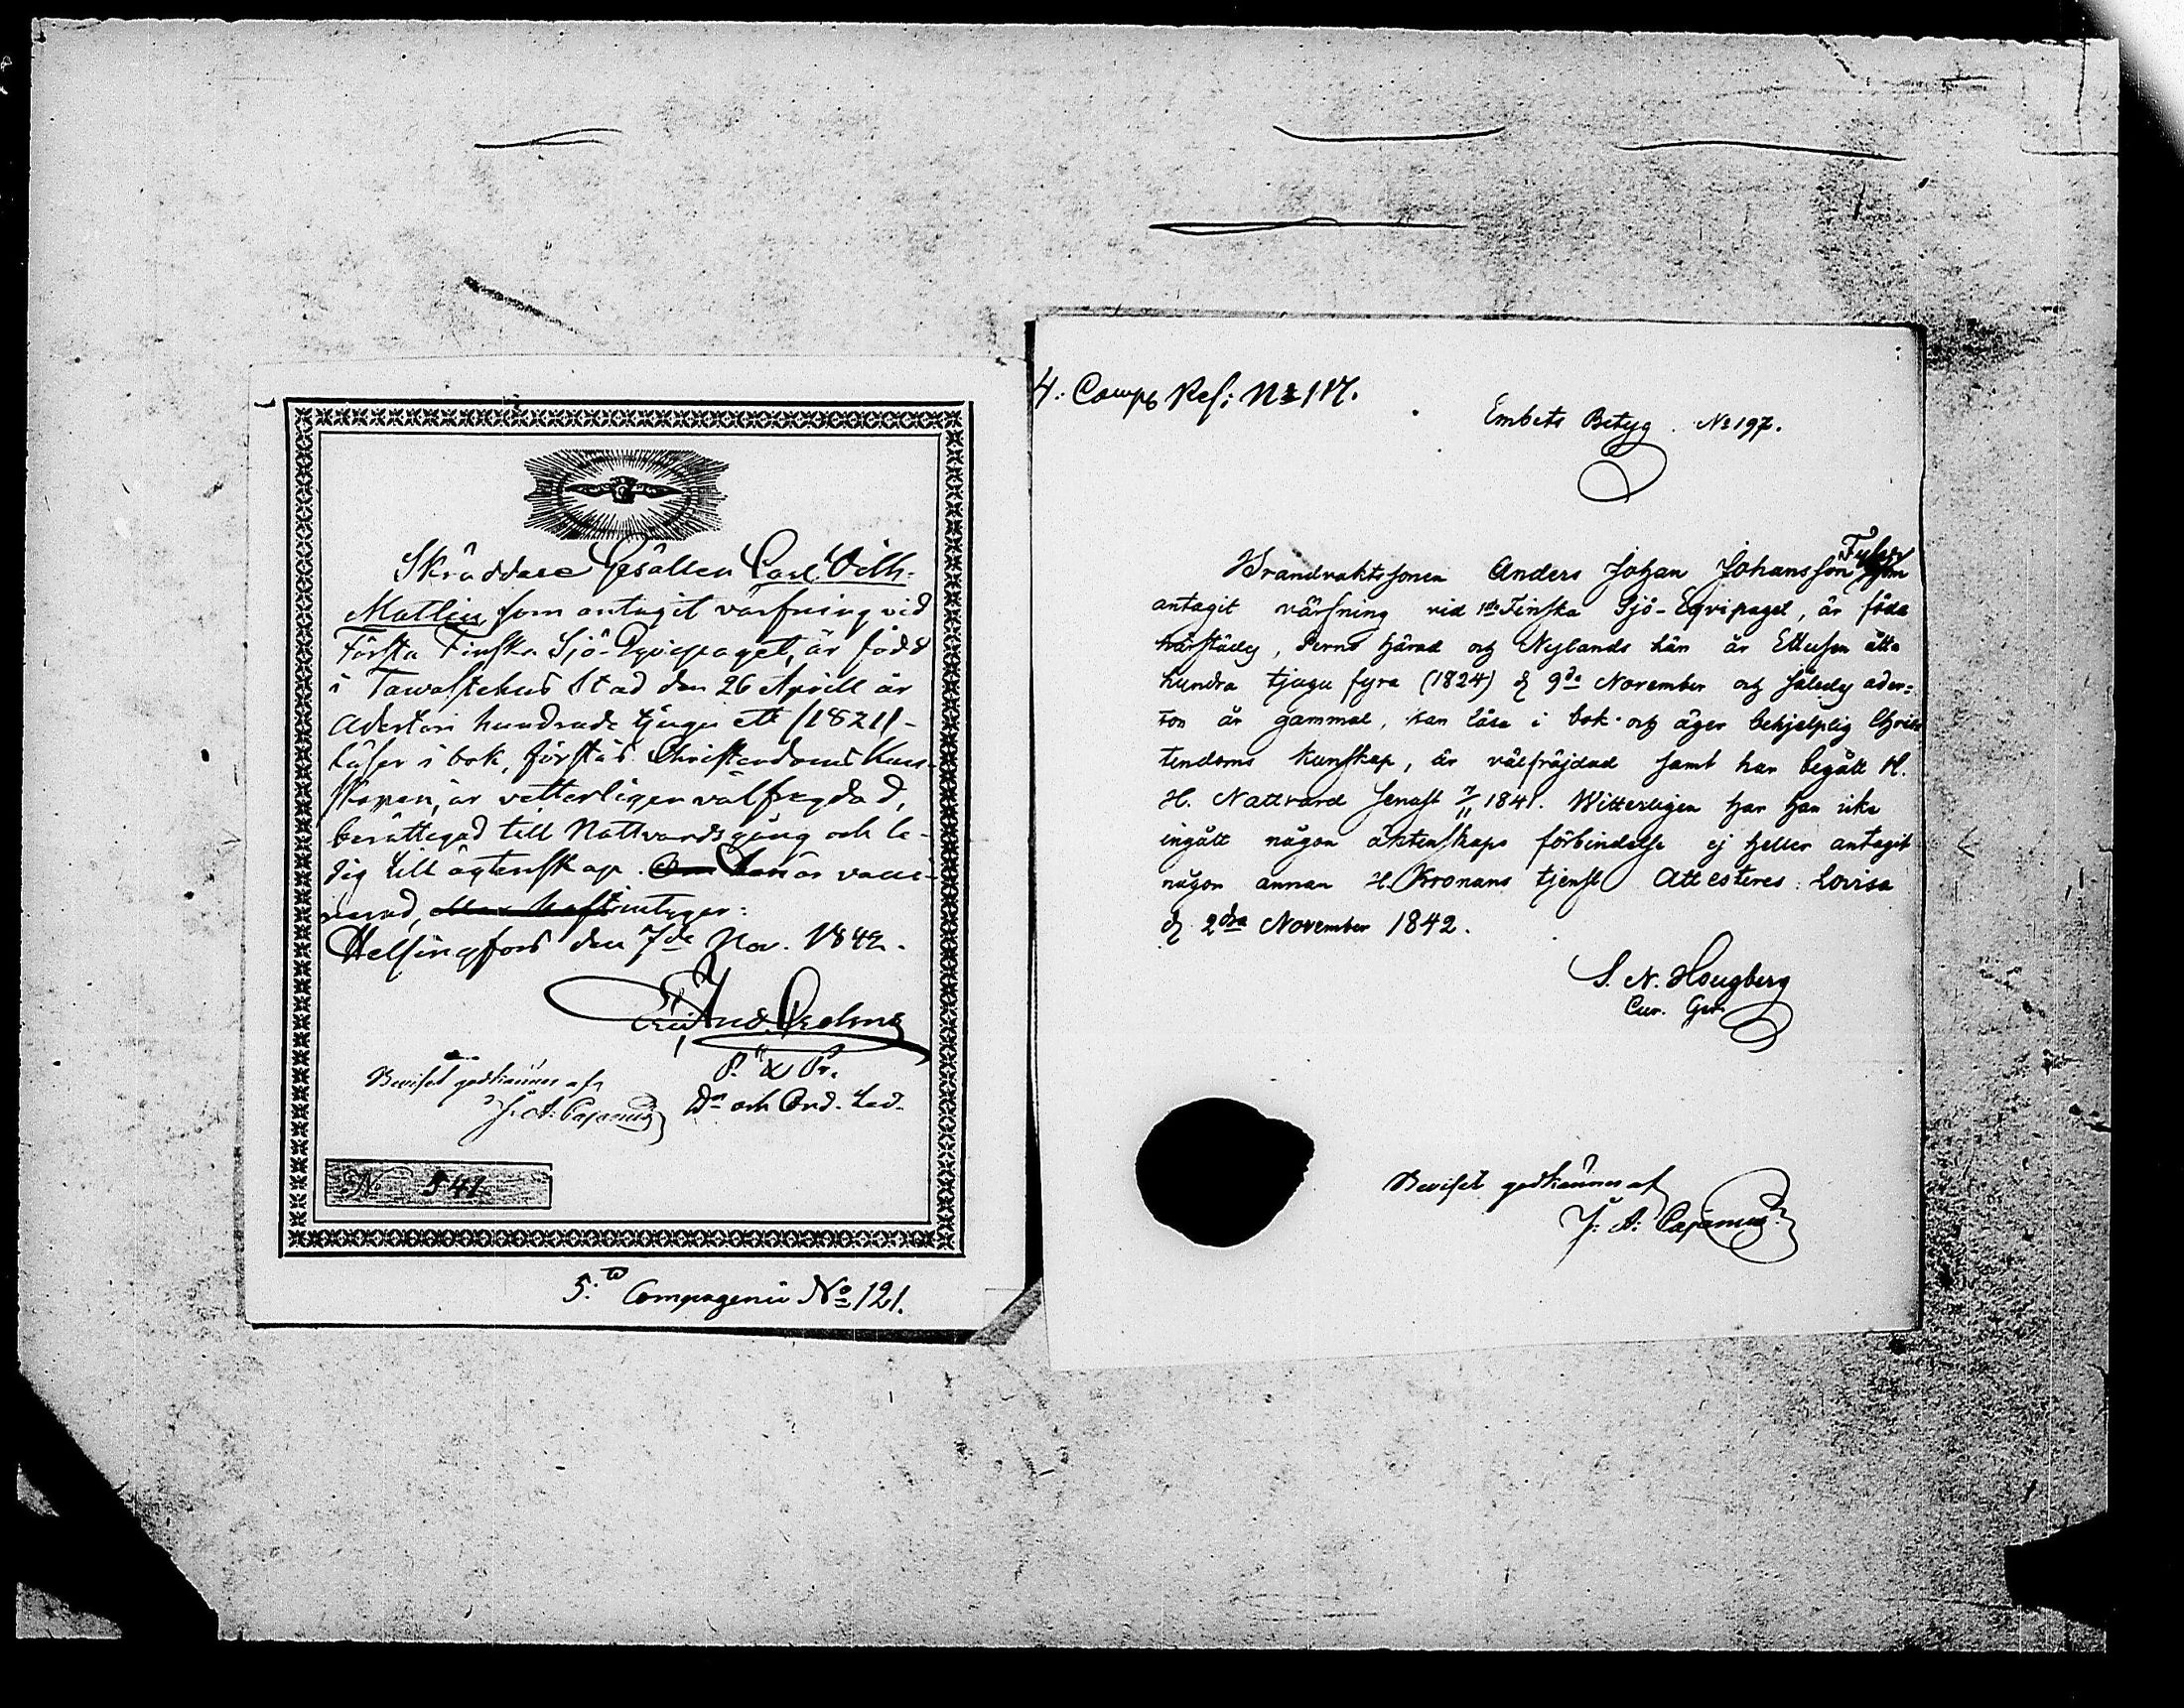 Skräddare Gesällen Carl Vilh:
Matlin som antagit värfning vid
Första Finska Sjö-Eqvipaget, är född
i Tawastehus Stad den 26 Aprill år
Aderton hundrade tjugu ett (1821) -
Läser i bok, förstår Christendoms Kun-
skapen, är vetterligen välfregdad,
berättigad till Nattvardsgång och le-
dig till ägtenskap. han är vacci-
nerad,
Helsingfors den 7de Nov. 1842.
P. & Pr.
Beviset godkännes af
J: A: Cajanus
No 541
5.to Compagnie No 121.
4: Comp Ref: No 117.
Embets Betyg. No 197.
Brandvaktssonen Anders Johan Johansson som
antagit värfning vid 1sta Finska Sjö-Eqvipaget, är född
härstädes, Perno härad och Nylands Län år Ettusen åtta
hundra tjugu fyra (1824) d. 9de November och således ader-
ton år gammal, kan läsa i bok och äger behjelplig Chris-
tendoms kunskap, är välfräjdad samt har begått H.
H. Nattvard senast 7/11 1841. Witterligen har han icke
ingått någon äktenskaps förbindelse ej heller antagit
någon annan H. Kronans tjenst Attesteres: Lovisa
d. 2dra November 1842.
S. N. Hougberg
Cur. Ger.
Beviset godkännes af
J: A: Cajanus